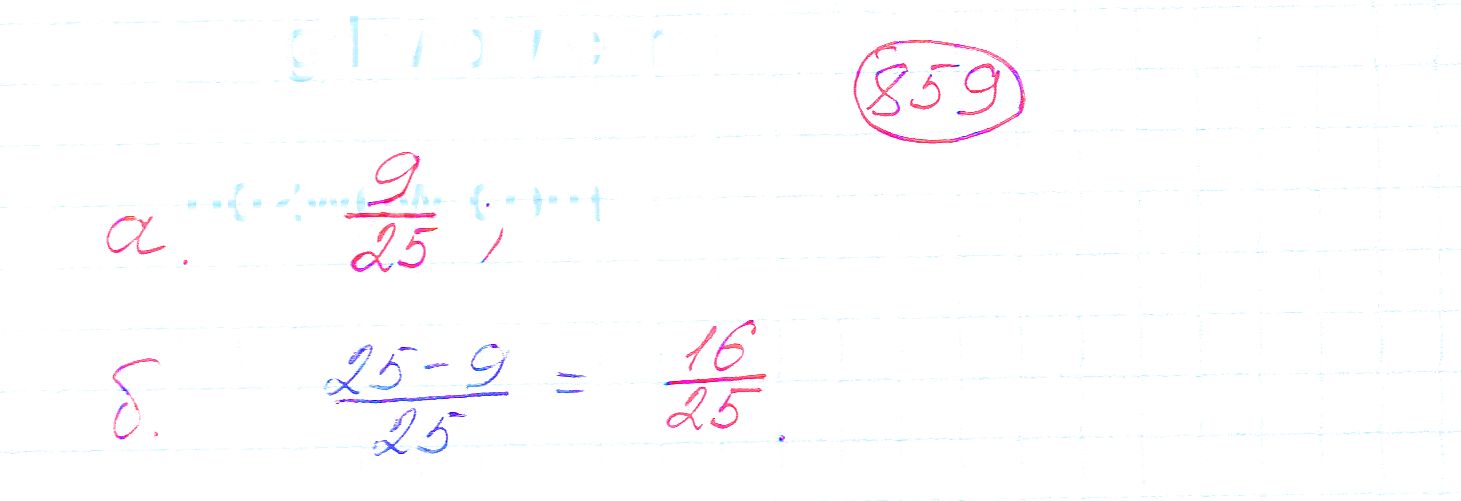 859
а. 9/25 ;
б. (25-9)/25 = 16/25 .